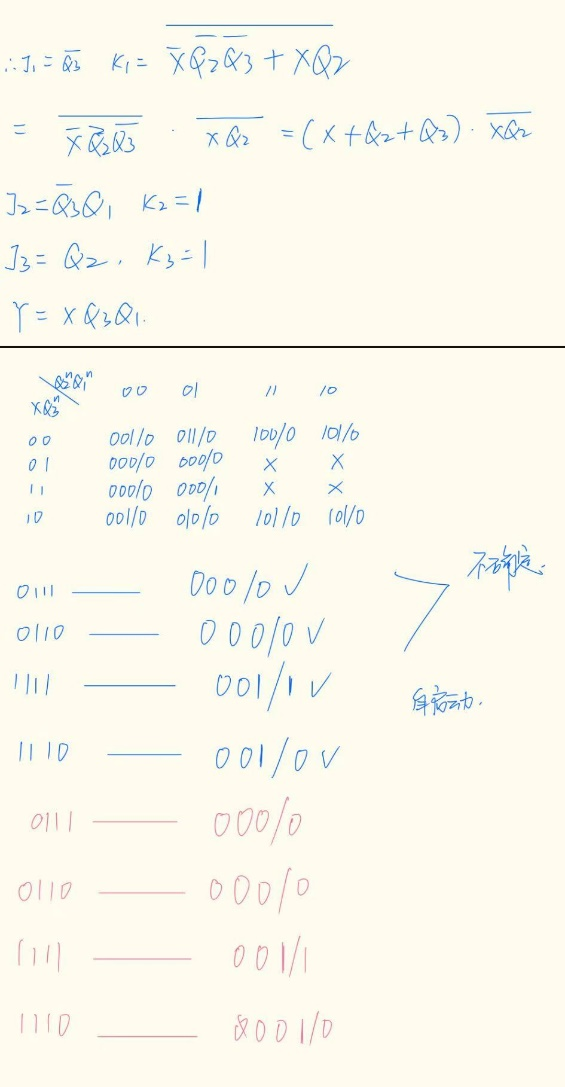 ∴J₁ = Q̄₃ K₁ = \overline{X̄Q̄₂Q̄₃ + XQ₂}
= \overline{X̄Q̄₂Q̄₃} · \overline{XQ₂} = (X+Q₂+Q₃) · \overline{XQ₂}
J₂ = Q̄₃Q₁ K₂ = 1
J₃ = Q₂ , K₃ = 1
Y = XQ₃Q₁.
Q₂ⁿQ₁ⁿ 00 01 11 10
XQ₃ⁿ
00 001/0 011/0 100/0 101/0
01 000/0 000/0 × ×
11 000/0 000/1 × ×
10 001/0 010/0 101/0 101/0
不确定.
0111 —— 000/0 ✓
0110 —— 000/0 ✓
1111 —— 001/1 ✓
自启动.
1110 —— 001/0 ✓
0111 —— 000/0
0110 —— 000/0
1111 —— 001/1
1110 —— 001/0